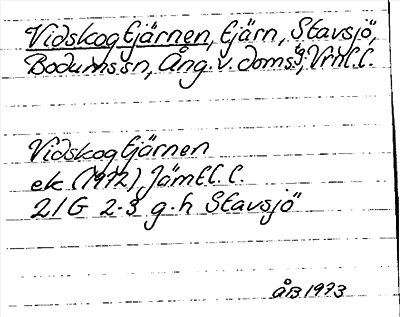 Vidskogtjärnen, tjärn, Stavsjö,
Bodums sn, Ång. v. doms., Vrnl. l.
Vidskogtjärnen
ek (1972), Jämtl. l.
21G 2-3 g-h Stavsjö
ÅB 1973